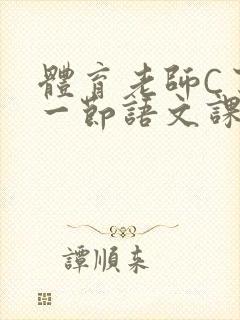 體育老師C
一節語文課
譚順來